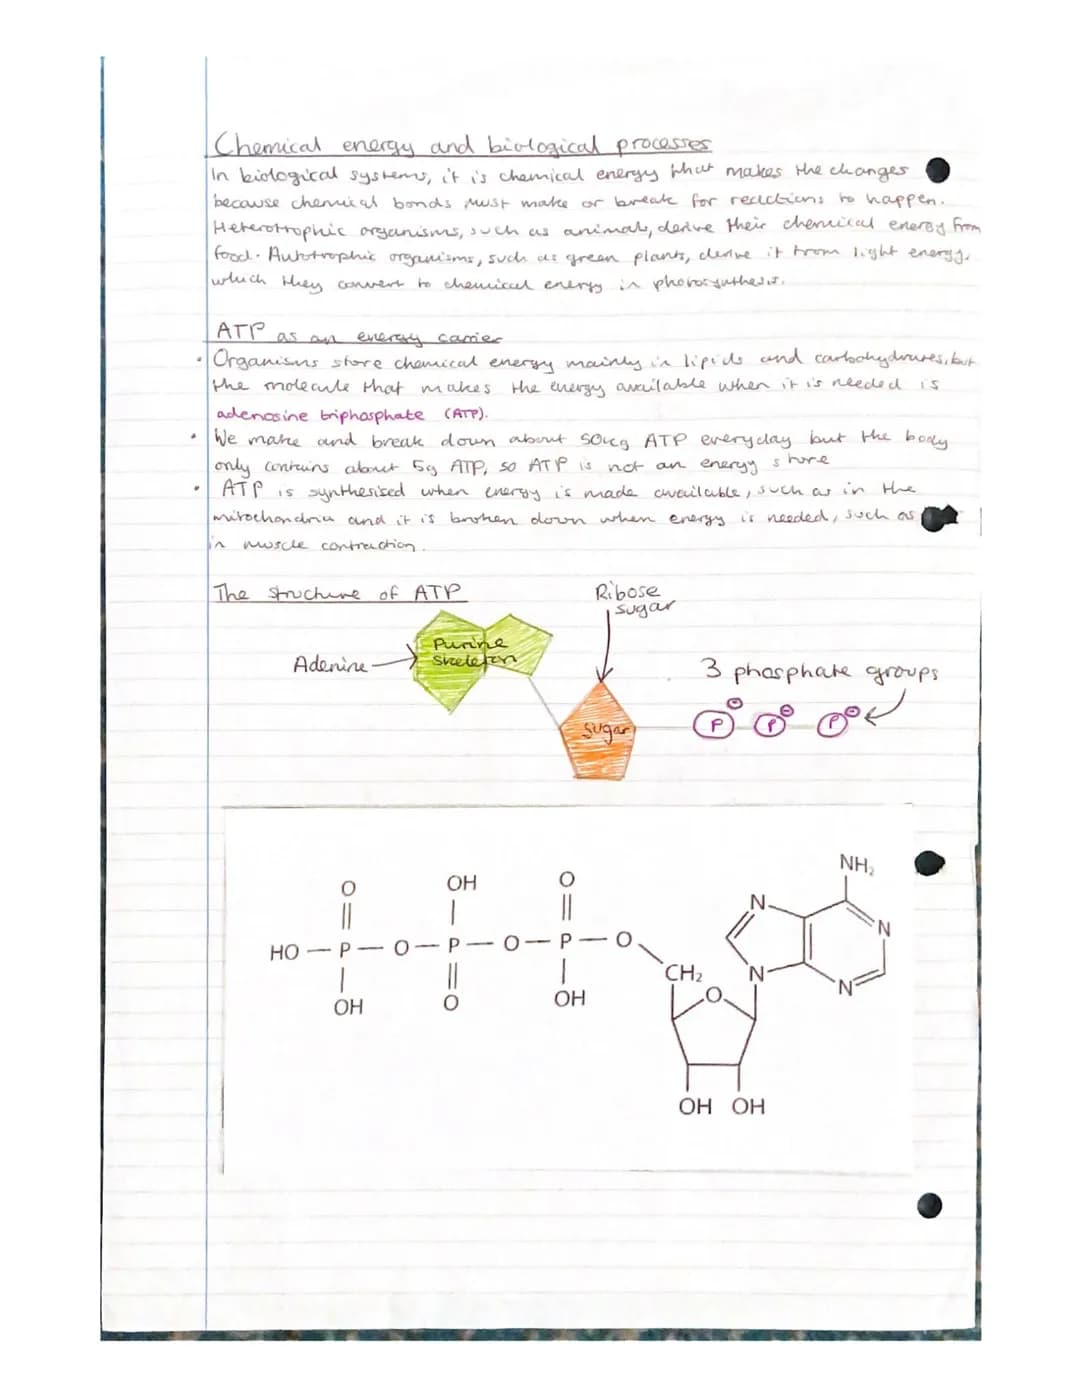 Chemical energy and biological processes
In biological systems, it is chemical energy that makes the changes
because chemical bonds must make or break for reactions to happen.
Heterotrophic organisms, such as animals, derive their chemical energy from
food. Autotrophic organisms, such as green plants, derive it from light energy,
which they convert to chemical energy in photosynthesis.
ATP as an energy carrier
• Organisms store chemical energy mainly in lipids and carbohydrates, but
the molecule that makes the energy available when it is needed is
adenosine triphosphate (ATP).
• We make and break down about 50kg ATP everyday but the body
only contains about 5g ATP, so ATP is not an energy store
• ATP is synthesised when energy is made available, such as in the
mitochondria and it is broken down when energy is needed, such as
in muscle contraction.
The structure of ATP
Ribose
sugar
Purine
skeleton
Adenine
3 phosphate groups
P P P
sugar
NH₂
O OH O
N N
HO — P — O — P — O — P — O
CH₂ N N
OH O OH
O
OH OH